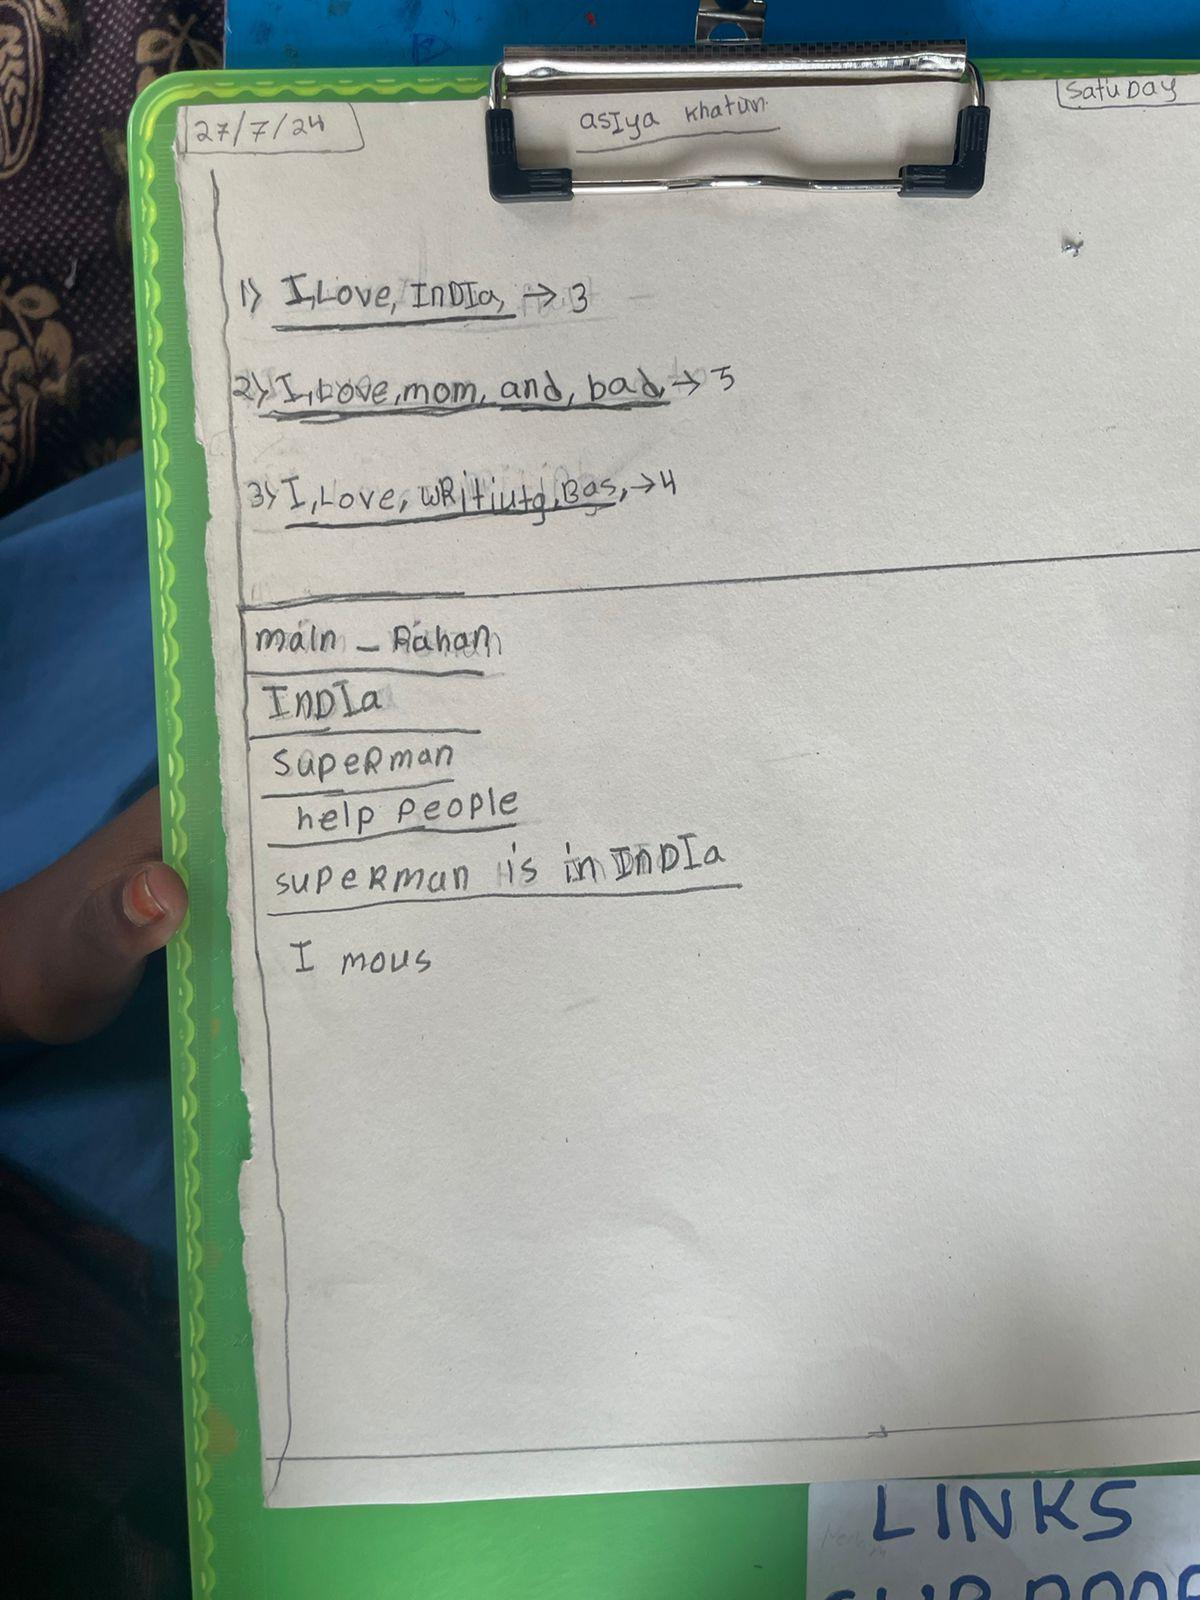 27/7/24 asIya Khatun Satu Day
1) I,Love, InDIa, → 3
2) I, Love, mom, and, bad, → 5
3) I, Love, wRitiutg, Bas, → 4
main - Rahan
InDIa
SapeRman
help People
suPeRman is in InDIa
I mous
LINKS